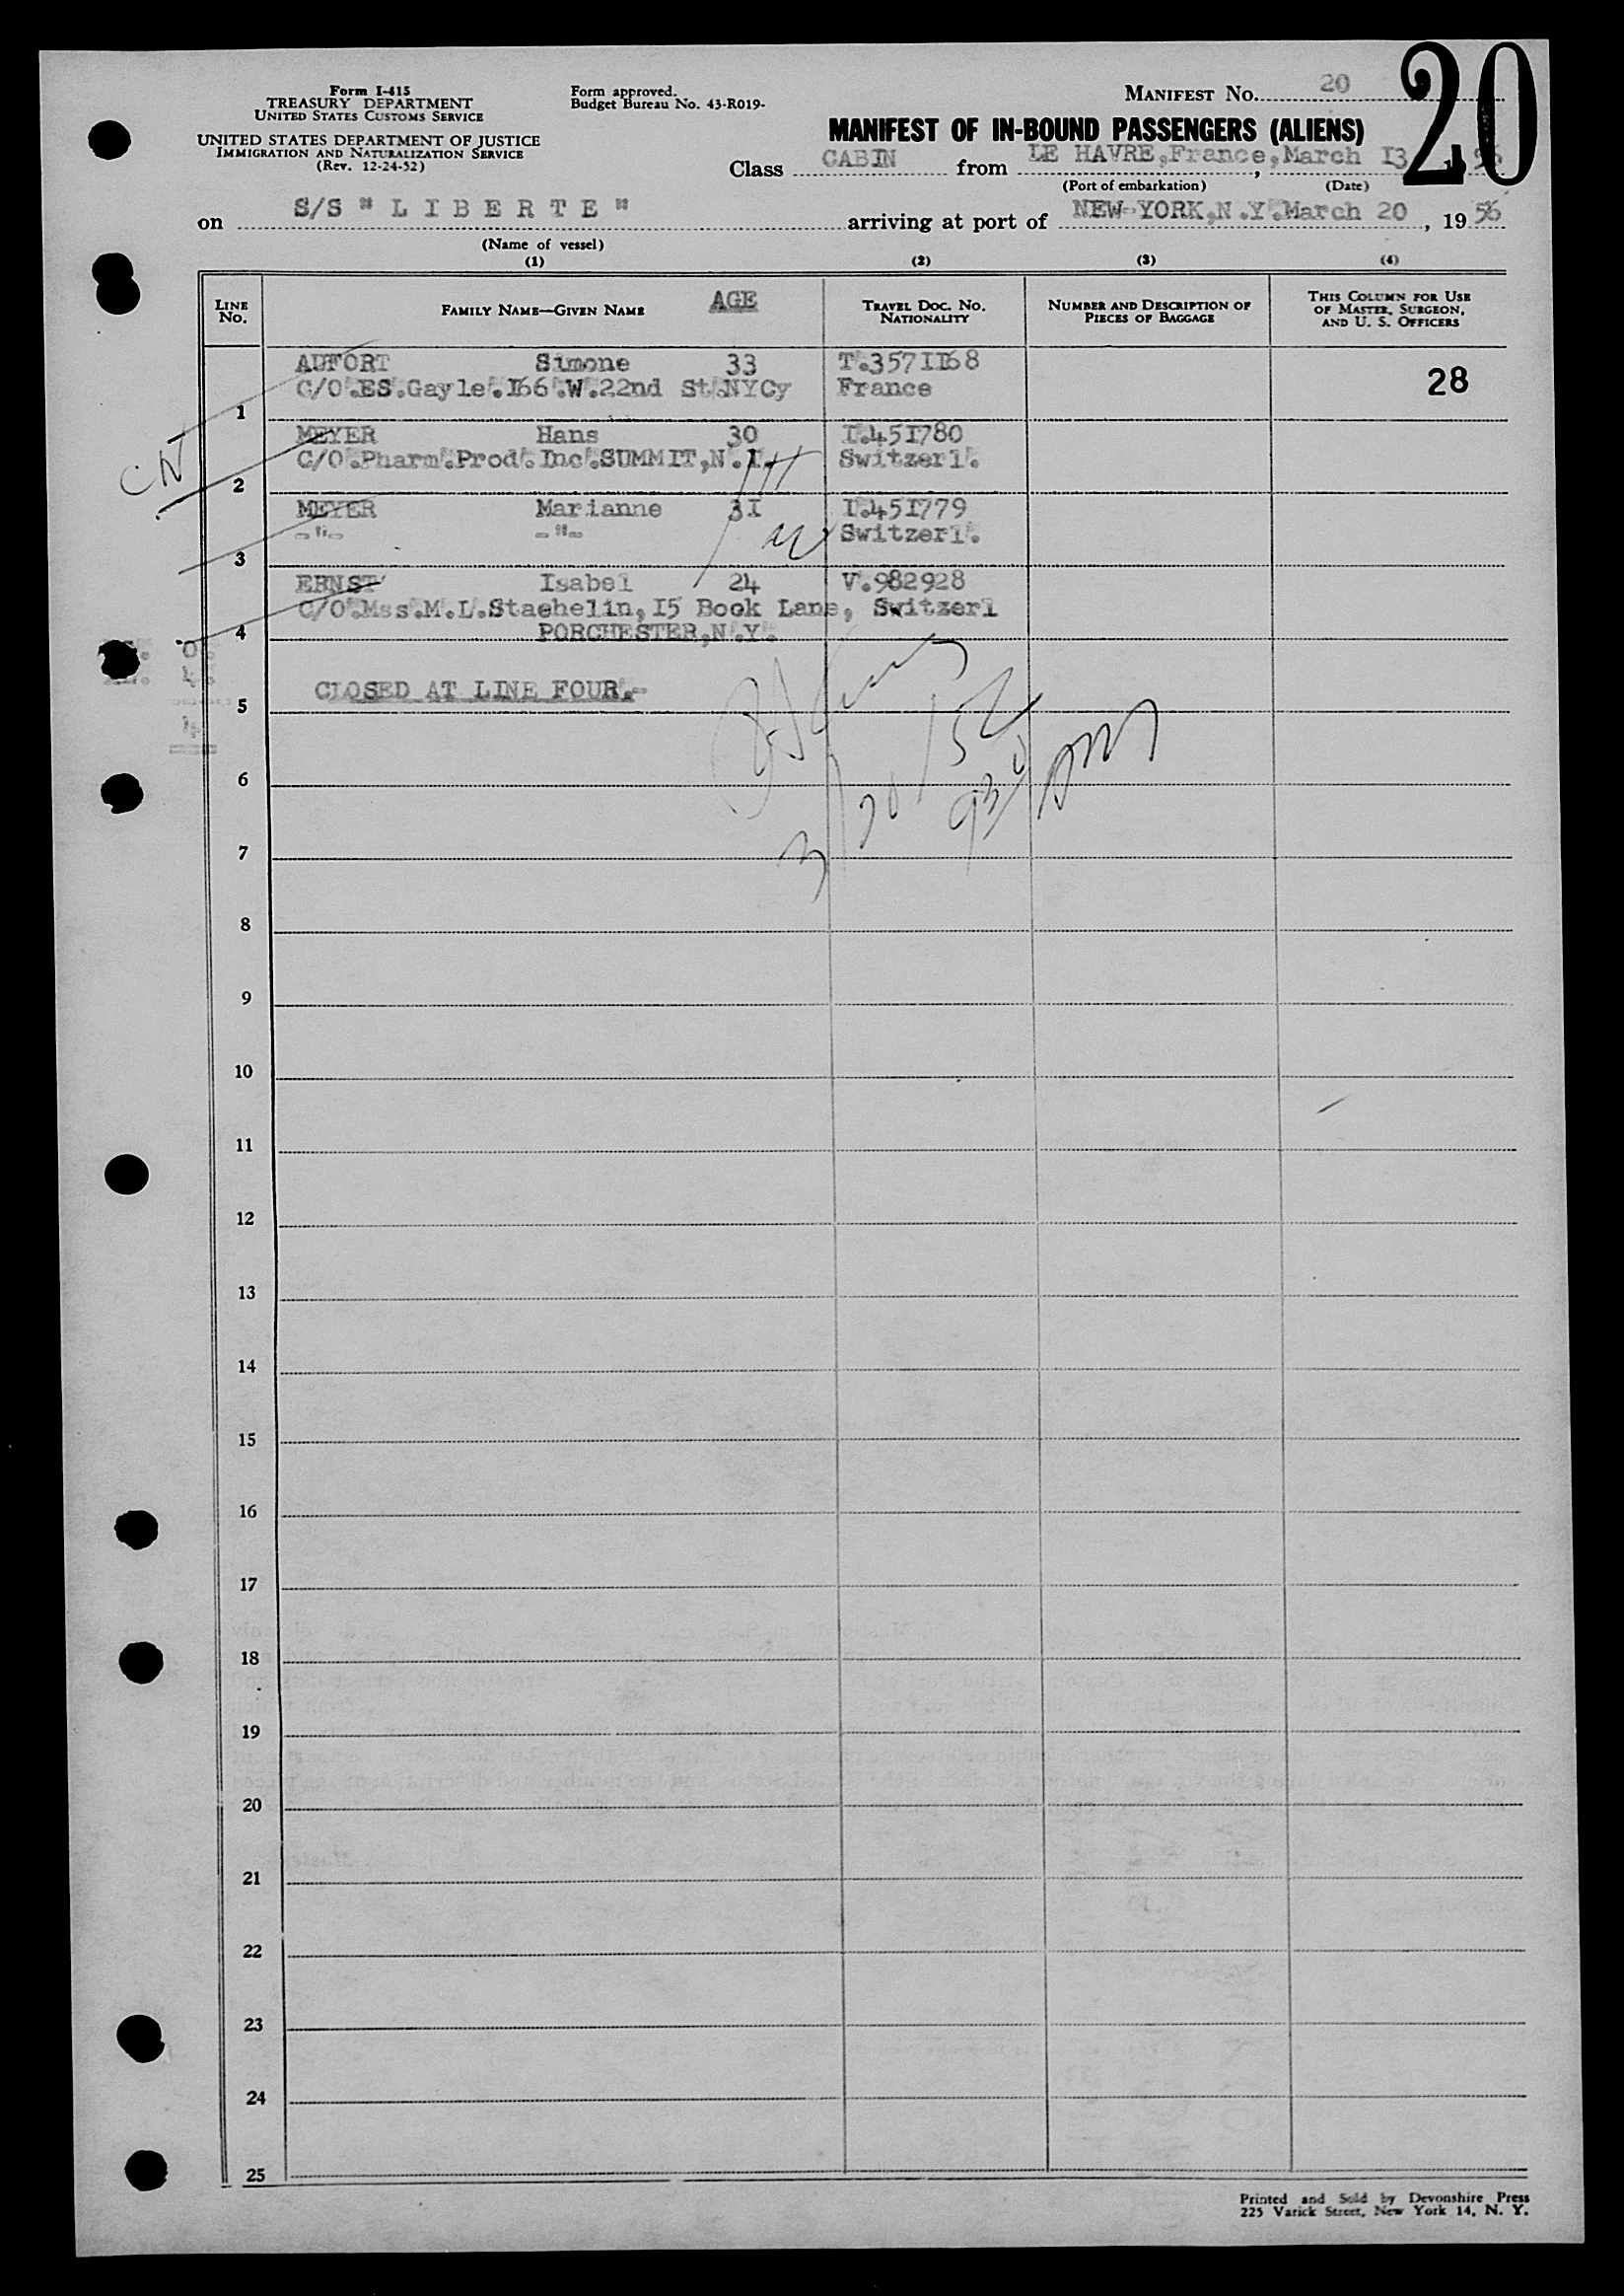 Form I-415
TREASURY DEPARTMENT
UNITED STATES CUSTOMS SERVICE
UNITED STATES DEPARTMENT OF JUSTICE
IMMIGRATION AND NATURALIZATION SERVICE
(Rev. 12-24-52)
Form approved.
Budget Bureau No. 43-R019-
MANIFEST No. 20
20
MANIFEST OF IN-BOUND PASSENGERS (ALIENS)
Class CABIN from LE HAVRE, France, March I3, 1956
(Port of embarkation) (Date)
on S/S " L I B E R T E " arriving at port of NEW-YORK, N.Y. March 20, 1956
(Name of vessel)
(1) (2) (3) (4)
LINE No. FAMILY NAME—GIVEN NAME AGE TRAVEL DOC. No. NATIONALITY NUMBER AND DESCRIPTION OF PIECES OF BAGGAGE THIS COLUMN FOR USE OF MASTER, SURGEON, AND U. S. OFFICERS
AUFORT Simone 33 T.357II68
C/O.ES.Gayle.I66.W.22nd St.NYCy France 28
1
MEYER Hans 30 I.45I780
C/O.Pharm.Prod.Inc.SUMMIT,N.I. Switzerl.
CN
2
MEYER Marianne 3I I.45I779
-"- -"- Switzerl.
3
ERNST Isabel 24 V.982928
C/O.Mss.M.L.Staehelin, I5 Book Lane, Switzerl
4 PORCHESTER,N.Y.
CLOSED AT LINE FOUR.-
5
6
3/20/52
930 pm
7
8
9
10
11
12
13
14
15
16
17
18
19
20
21
22
23
24
25
Printed and Sold by Devonshire Press
225 Varick Street, New York 14, N. Y.